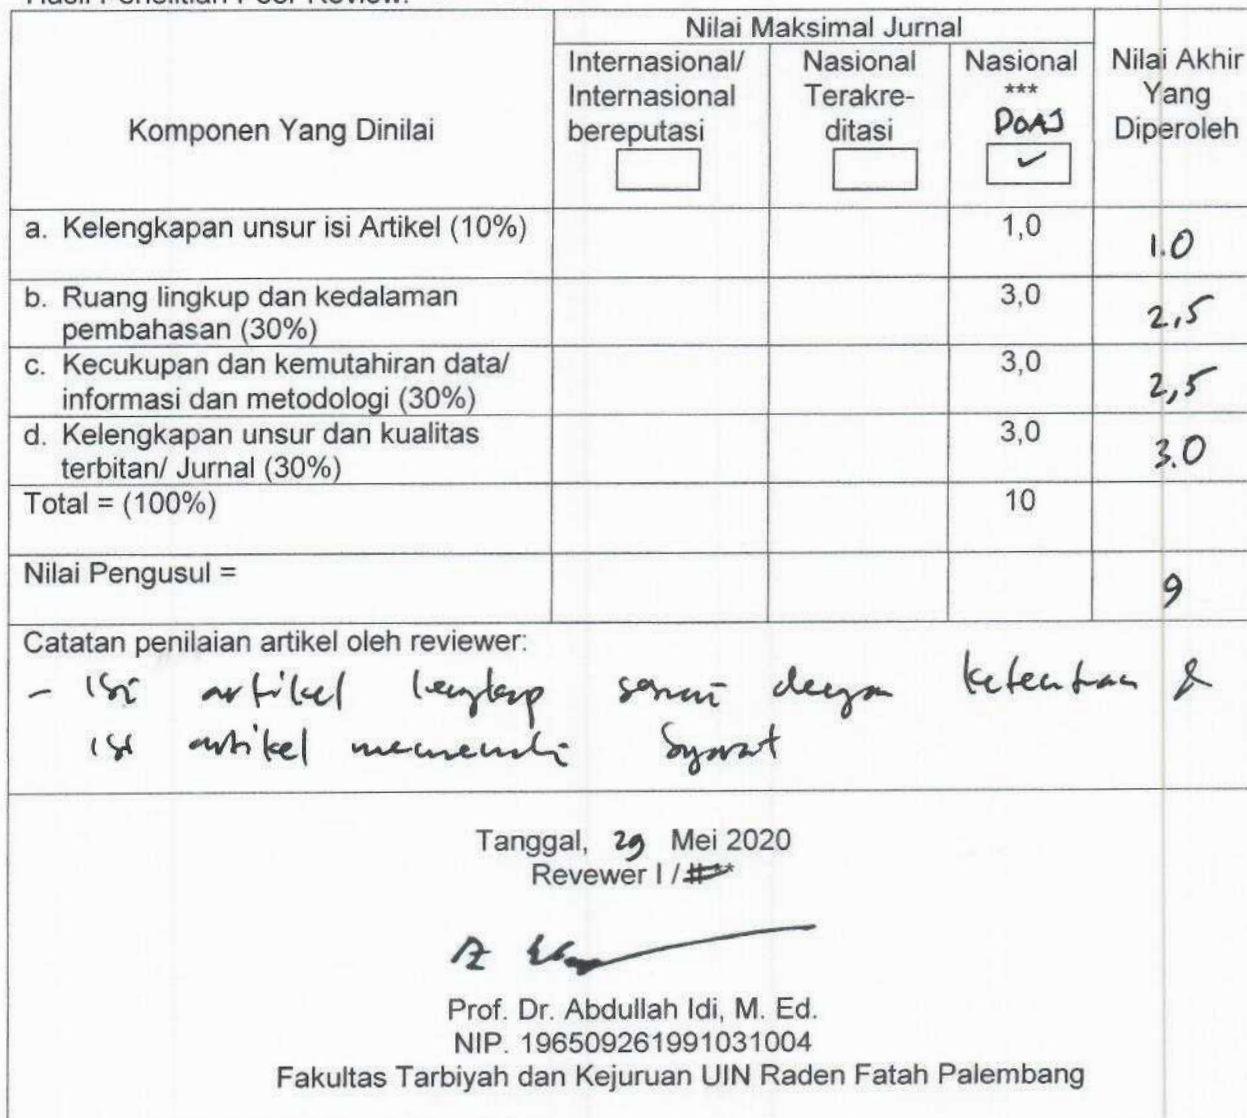 Hasil Penelitian Peer Review:
Nilai Maksimal Jurnal
Komponen Yang Dinilai
Internasional/
Internasional
bereputasi
Nasional
Terakre-
ditasi
Nasional
***
DOAJ
✓
Nilai Akhir
Yang
Diperoleh
a. Kelengkapan unsur isi Artikel (10%) 1,0 1.0
b. Ruang lingkup dan kedalaman
pembahasan (30%) 3,0 2,5
c. Kecukupan dan kemutahiran data/
informasi dan metodologi (30%) 3,0 2,5
d. Kelengkapan unsur dan kualitas
terbitan/ Jurnal (30%) 3,0 3.0
Total = (100%) 10
Nilai Pengusul = 9
Catatan penilaian artikel oleh reviewer:
- isi artikel lengkap sesuai dengan ketentuan &
isi artikel memenuhi syarat
Tanggal, 29 Mei 2020
Revewer I /
Prof. Dr. Abdullah Idi, M. Ed.
NIP. 196509261991031004
Fakultas Tarbiyah dan Kejuruan UIN Raden Fatah Palembang